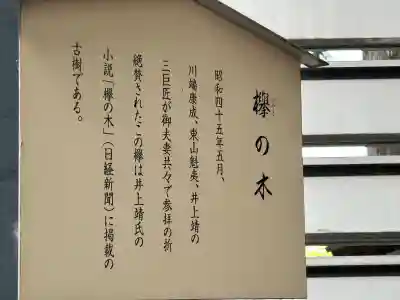 欅の木
昭和四十五年五月、
川端康成、東山魁夷、井上靖の
三巨匠が御夫妻共々で参拝の折
絶賛されたこの欅は井上靖氏の
小説「欅の木」（日経新聞）に掲載の
古樹である。